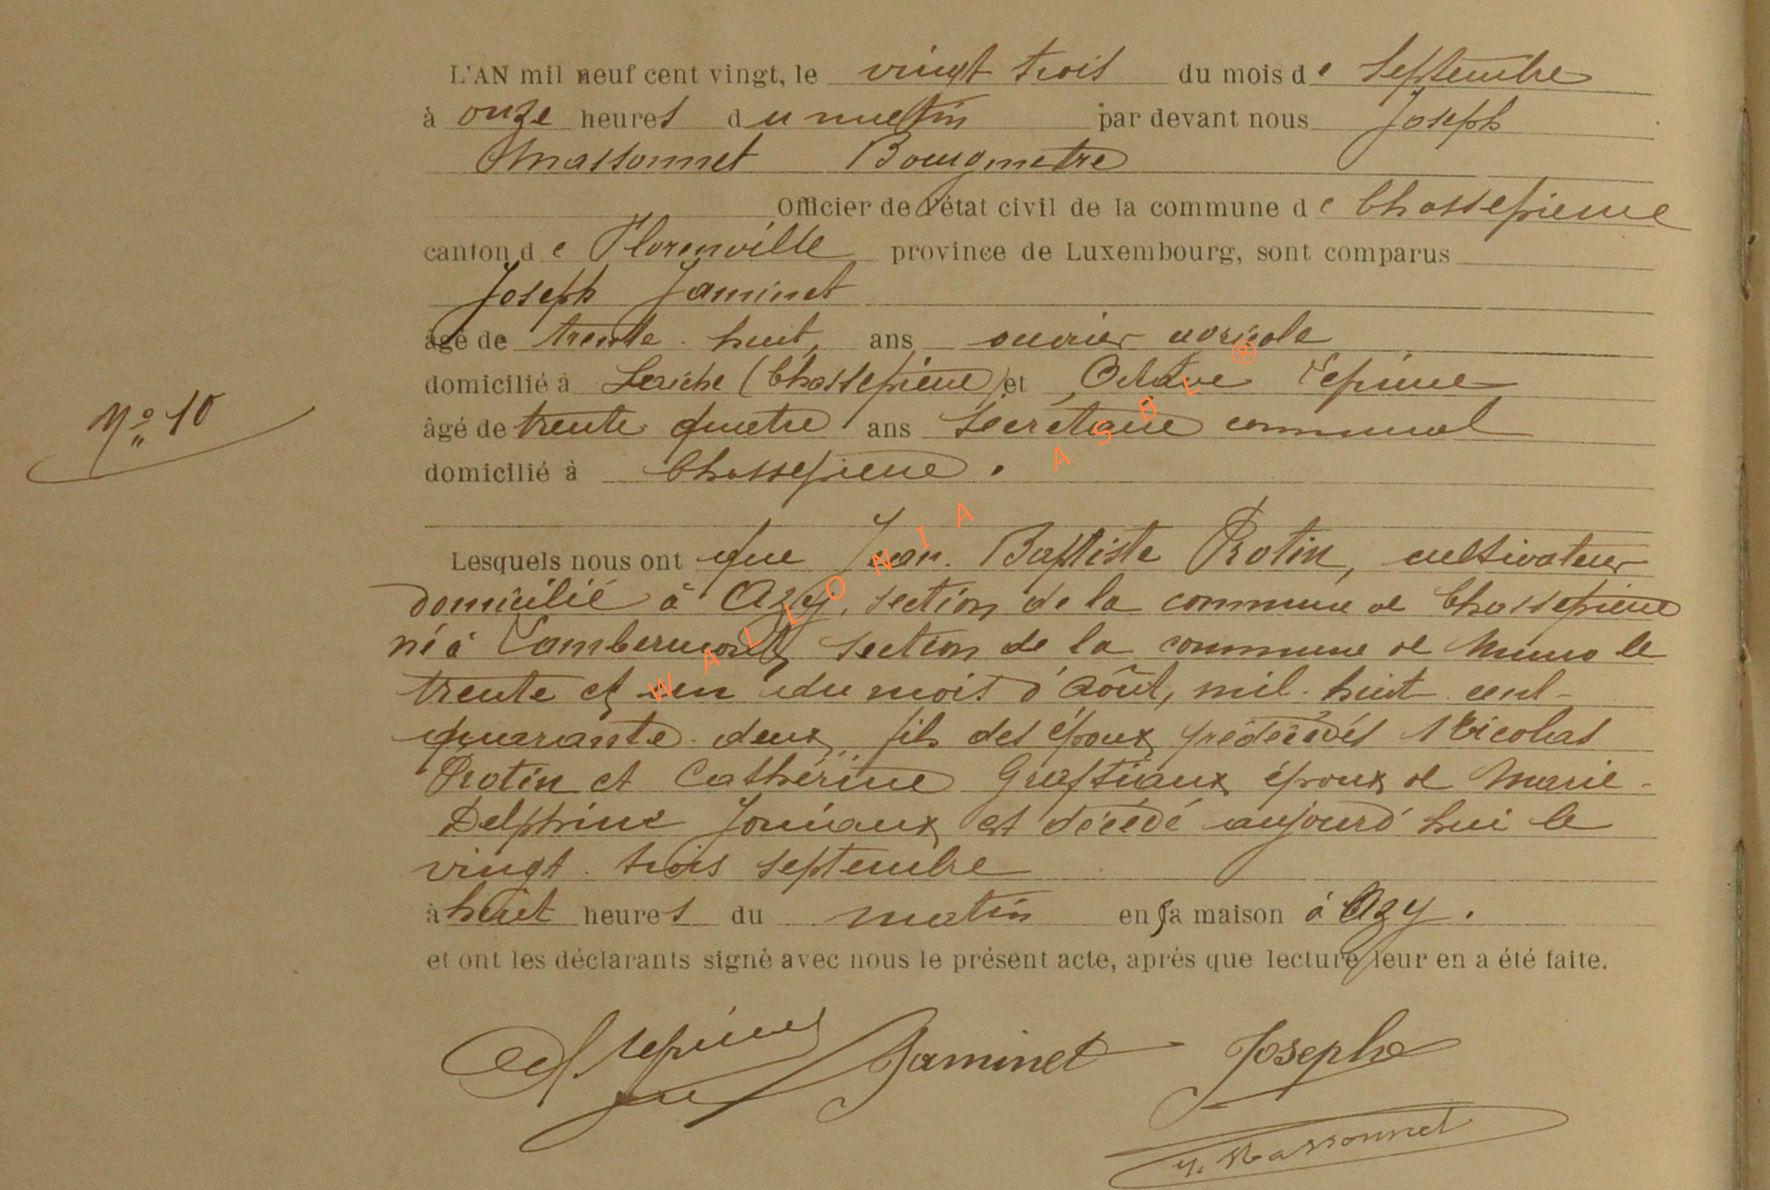 L'AN mil neuf cent vingt, le vingt trois du mois de Septembre
à onze heures du matin par devant nous Joseph
Massonnet Bourgmetre
Officier de l'état civil de la commune de Chassepierre
canton de Florenville province de Luxembourg, sont comparus
Joseph Jaminet
âgé de trente-huit ans ouvrier agricole
domicilié à Laiche (Chassepierre) et Octave Lepine
N° 10
âgé de trente quatre ans Secrétaire communal
domicilié à Chassepierre.
Lesquels nous ont que Jean Baptiste Rotin, cultivateur
domicilié à Azy, section de la commune de Chassepierre
né à Lambermont, section de la commune de Muno le
trente et un du mois d'Août, mil-huit cent-
quarante-deux, fils des époux prédécédés Nicolas
Rotin et Cathérine Graftiaux époux de Marie-
Delphine Joniaux est décédé aujourd'hui le
vingt-trois septembre
à huit heures du matin en sa maison à Azy.
et ont les déclarants signé avec nous le présent acte, après que lecture leur en a été faite.
Jaminet Joseph
J. Massonnet
WALLONIA ASBL ®